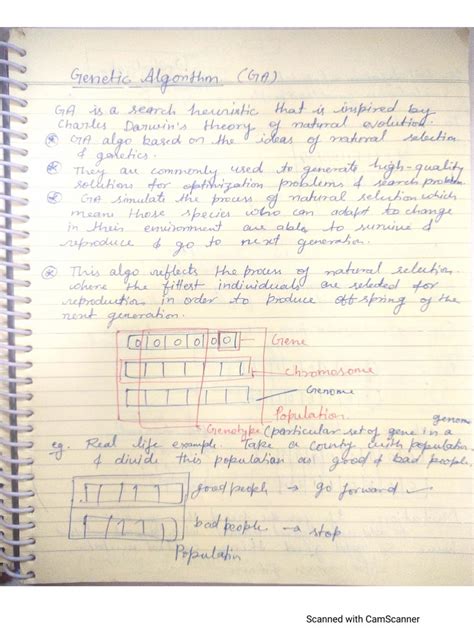 Genetic Algorithm (GA)
GA is a search heuristic that is inspired by
Charles Darwin's theory of natural evolution.
* GA algo based on the ideas of natural selection
& genetics.
* They are commonly used to generate high-quality
solutions for optimization problems & search problem.
* GA simulate the process of natural selection which
means those species who can adapt to change
in their environment are able to survive &
reproduce & go to next generation.
* This algo reflects the process of natural selection
where the fittest individuals are selected for
reproduction in order to produce offspring of the
next generation.
0 0 0 0 0 0 Gene
1 1 1 1 chromosome
Genome
Population
genome
Genotype (particular set of gene in a
eg. Real life example Take a county with population
& divide this population as good & bad people,
1 1 1 1 good people → go forward ✓
1 1 1 bad people → stop
Population
Scanned with CamScanner